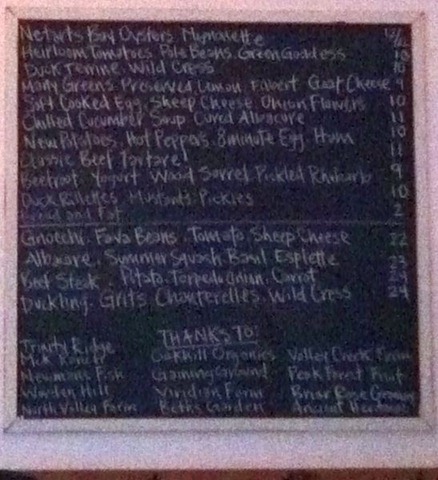 Netarts Bay Oysters Mignonette
Heirloom Tomatoes. Pole Beans. Green Goddess 10
Duck Terrine. Wild Cress 10
Many Greens. Preserved Lemon. Filbert. Goat Cheese 9
Soft Cooked Egg. Sheep Cheese. Onion Flowers 10
Chilled Cucumber Soup Cured Albacore 11
New Potatoes. Hot Peppers. 8 minute Egg. Ham 10
Classic Beef Tartare! 11
Beetroot Yogurt Wood Sorrel Pickled Rhubarb 9
Duck Rillettes Mustards Pickles 10
and Fat 2
Gnocchi. Fava Beans. Tomato. Sheep Cheese 22
Albacore. Summer Squash Basil Espelette 23
Beef Steak. Potato. Torpedo Onion. Carrot 24
Duckling. Grits Chanterelles. Wild Cress 24
THANKS TO:
Trinity Ridge
Oakhill Organics Valley Creek Farm
Newmans Fish Gaining Ground Peak Forest Fruit
Worden Hill Viridian Farm Briar Rose Creamery
North Valley Farm Beth's Garden Ancient Heritage